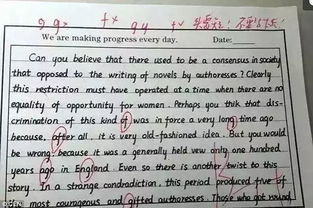 g g x f x g y f v
We are making progress every day. Date:
Can you believe that there used to be a consensus in society
that opposed to the writing of novels by authoresses? Clearly
this restriction must have operated at a time when there are no
equality of opportunity for women. Perhaps you thik that dis-
crimination of this kind of was in force a very long time ago
because, after all, it is very old-fashioned idea. But you would
be wrong, because it was a generally held vew only one hundred
years ago in England. Even so there is another twist to this
story. In a strange condradiction, this period produced five of
most courageous and gifted authoresses. Those who got wound